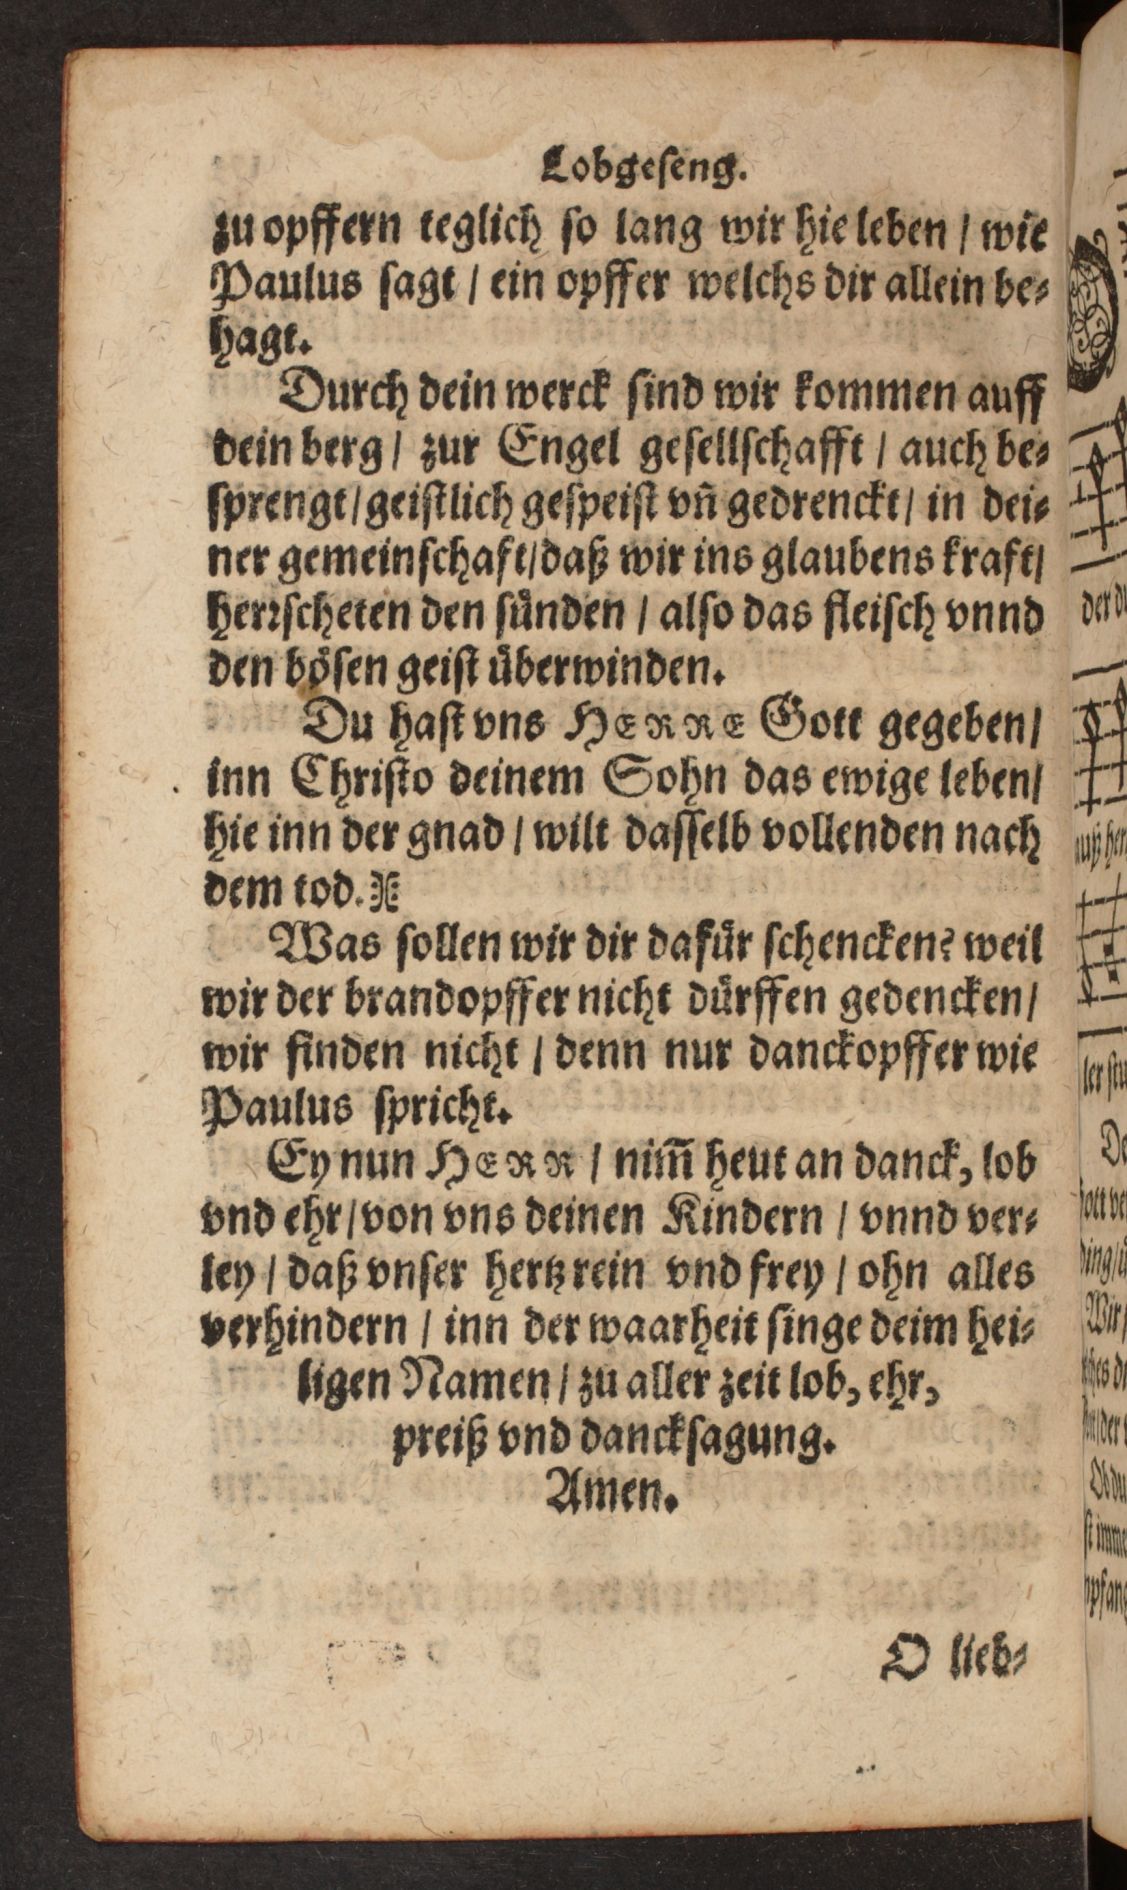 Lobgeſeng.
zu opffern teglich ſo lang wir hie leben / wie
Paulus ſagt / ein opffer welchs dir allein be⸗
hagt.
Durch dein werck ſind wir kommen auff
dein berg / zur Engel geſellſchafft / auch be⸗
ſprengt / geiſtlich geſpeiſt vn̄ gedrenckt / in dei⸗
ner gemeinſchaft / daß wir ins glaubens kraft /
herꝛſcheten den ſuͤnden / alſo das fleiſch vnnd
den boͤſen geiſt uͤberwinden.
Du haſt vns HERRE Gott gegeben /
inn Chriſto deinem Sohn das ewige leben /
hie inn der gnad / wilt daſſelb vollenden nach
dem tod.
Was ſollen wir dir dafuͤr ſchencken? weil
wir der brandopffer nicht duͤrffen gedencken /
wir finden nicht / denn nur danckopffer wie
Paulus ſpricht.
Ey nun HERR / nim̄ heut an danck, lob
vnd ehr / von vns deinen Kindern / vnnd ver⸗
ley / daß vnſer hertz rein vnd frey / ohn alles
verhindern / inn der waarheit ſinge deim hei⸗
ligen Namen / zu aller zeit lob, ehr,
preiß vnd danckſagung.
Amen.
O lieb⸗